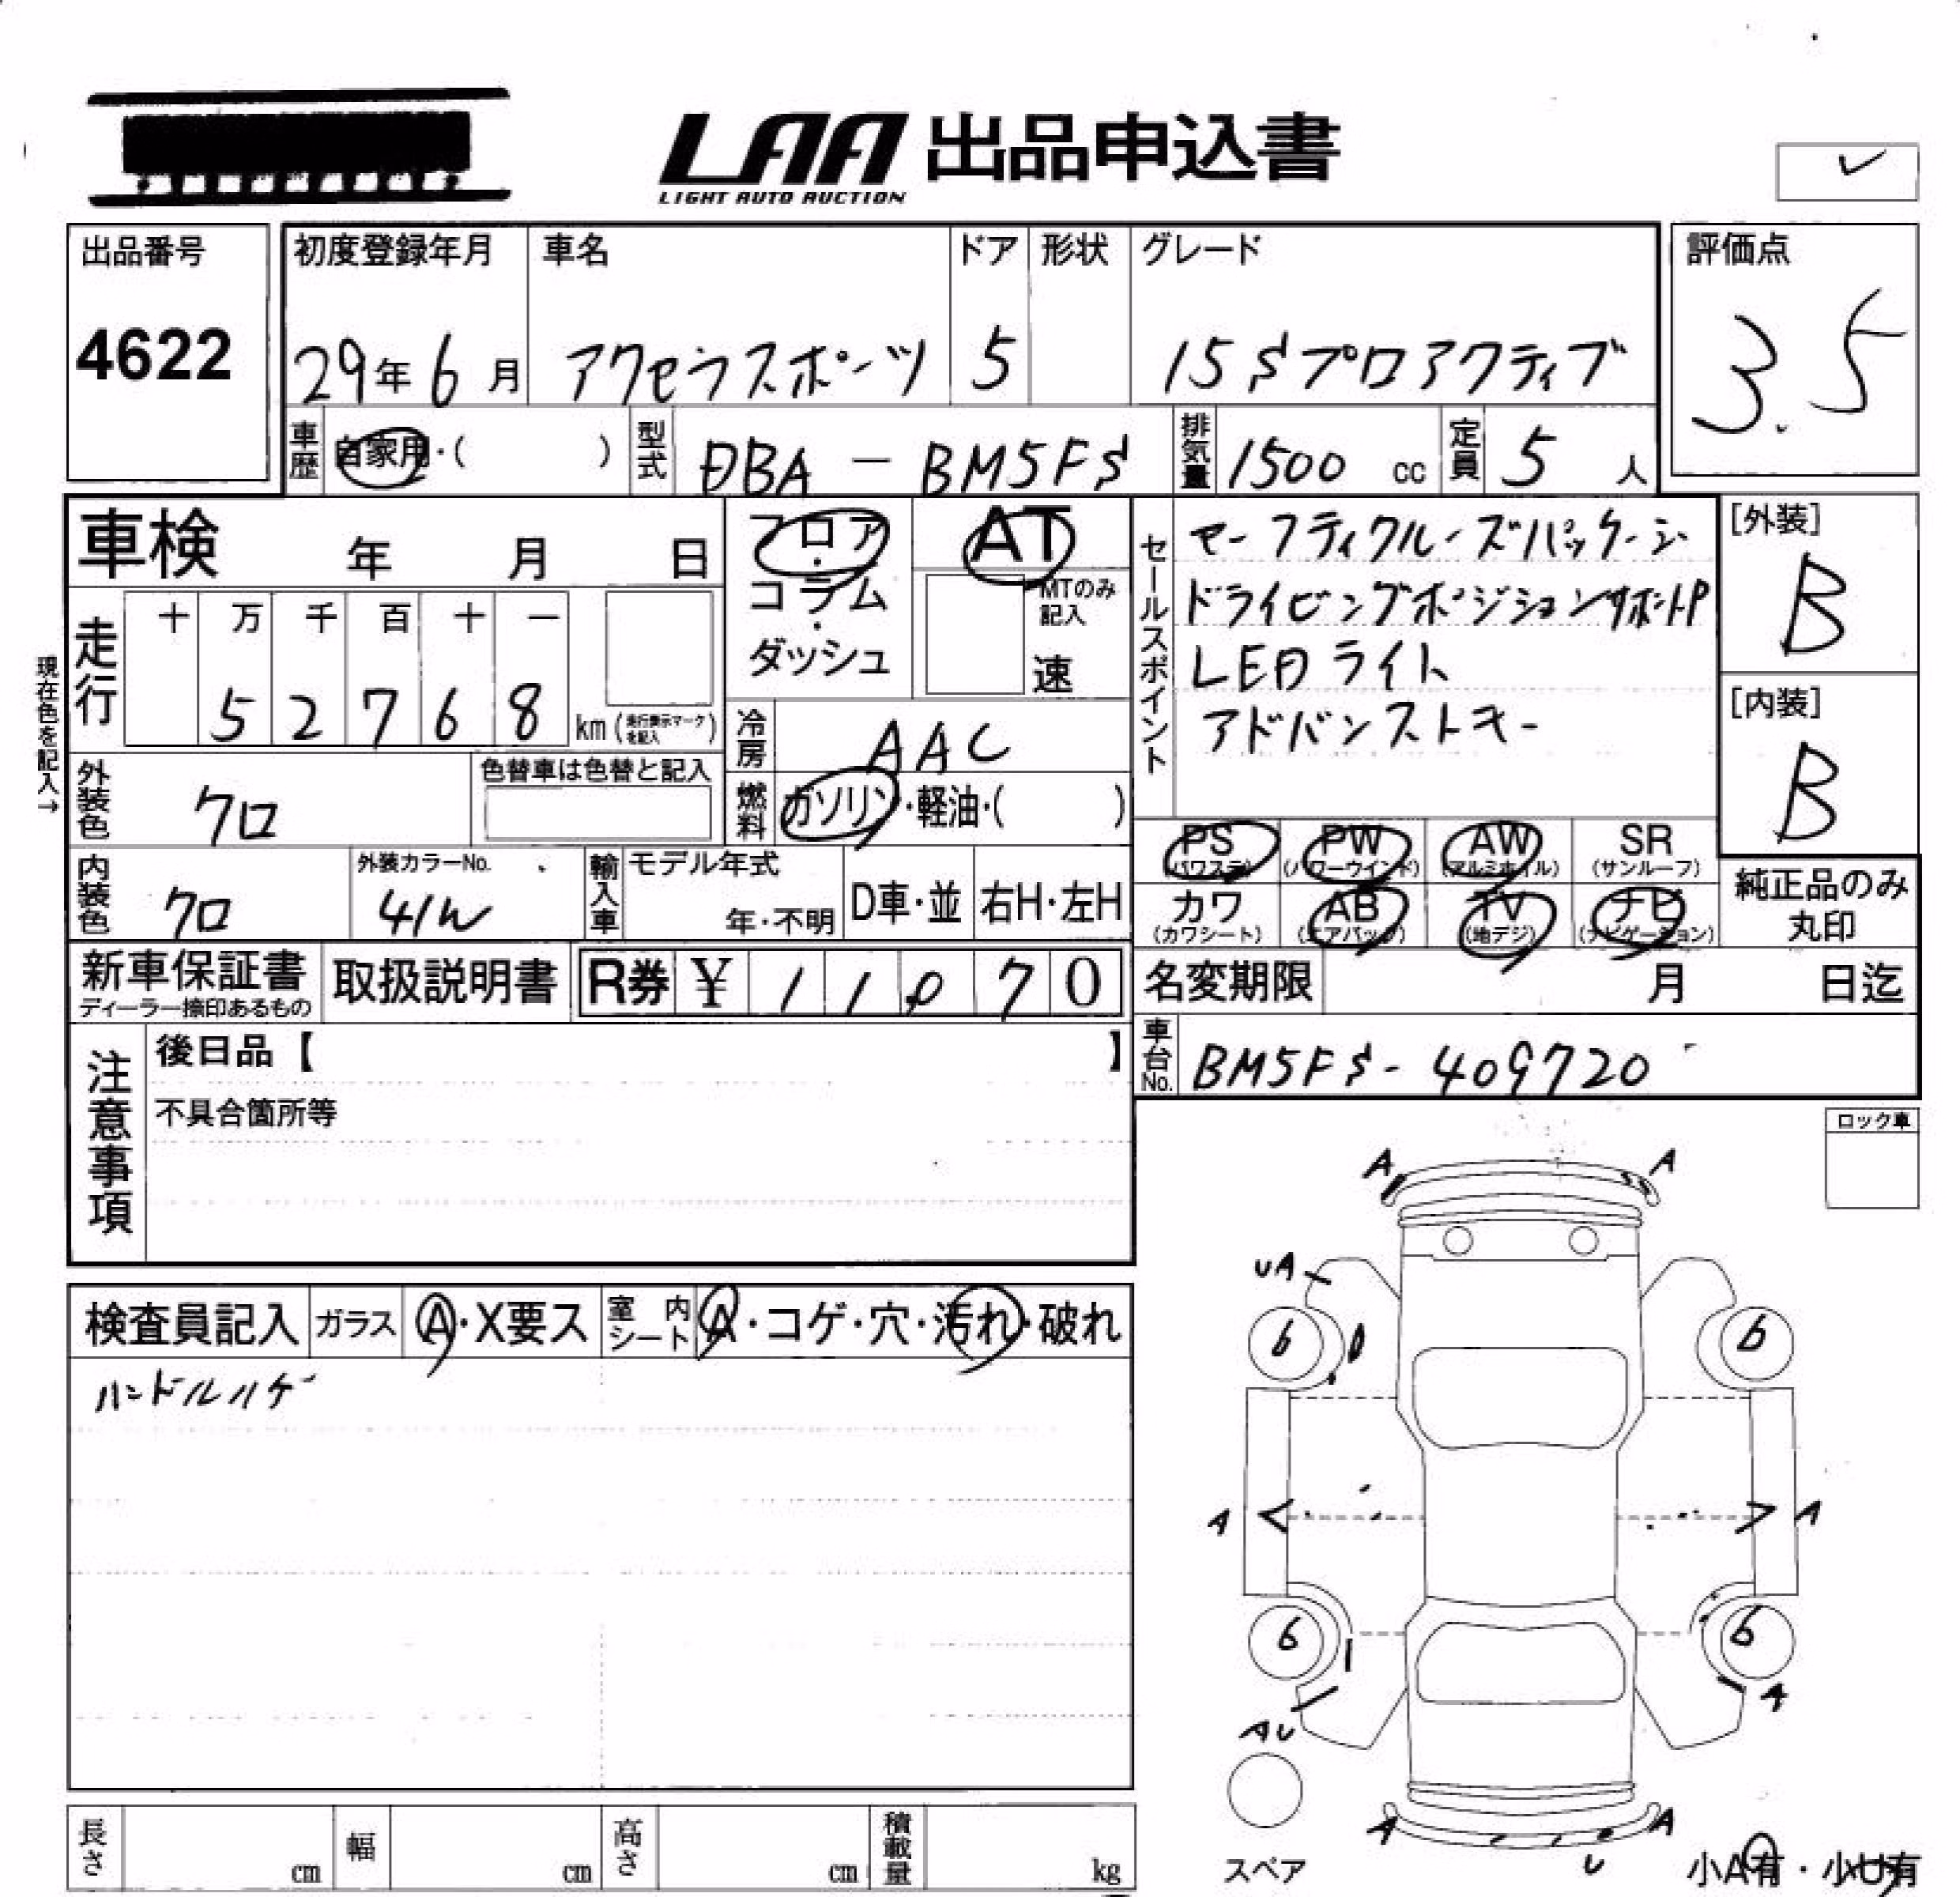 LAA 出品申込書
LIGHT AUTO AUCTION
出品番号
4622
初度登録年月 車名 ドア 形状 グレード
29年 6月 アクセラスポーツ 5 15Sプロアクティブ
評価点
3.5
車歴 自家用・( ) 型式 DBA-BM5FS 排気量 1500 cc 定員 5 人
車検 年 月 日
フロア・コラム・ダッシュ
AT
MTのみ記入
速
現在色を記入→
走行 十 万 千 百 十 一
5 2 7 6 8 km (走行表示マークを記入)
冷房 AAC
外装色 クロ
色替車は色替と記入
燃料 ガソリン・軽油・( )
内装色 クロ
外装カラーNo. 41W
輸入車 モデル年式
年・不明 D車・並 右H・左H
セールスポイント
セーフティクルーズパッケージ
ドライビングポジションサポートP
LEDライト
アドバンストキー
[外装]
B
[内装]
B
PS (パワステ) PW (パワーウインド) AW (アルミホイル) SR (サンルーフ)
カワ (カワシート) AB (エアバッグ) TV (地デジ) ナビ (ナビゲーション)
純正品のみ丸印
新車保証書
ディーラー捺印あるもの
取扱説明書
R券 ¥ 1 1 0 7 0
名変期限 月 日迄
車台No. BM5FS-409720
注意事項
後日品【 】
不具合箇所等
ロック車
検査員記入 ガラス A・X要ス 室内シート A・コゲ・穴・汚れ・破れ
ハンドルハゲ
A A
UA
6 6
A A
6 6
A
AU
A A
U
スペア
小A有・小U有
長さ cm 幅 cm 高さ cm 積載量 kg